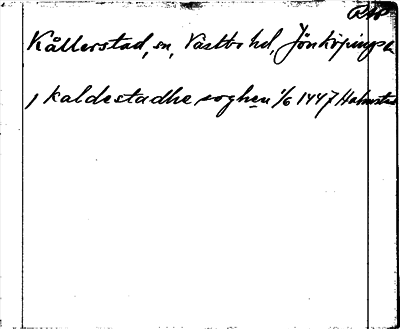 Kållerstad, sn, Västbo hd, Jönköpings l.
i kaldestadhe soghen 1/6 1447 Halmstad